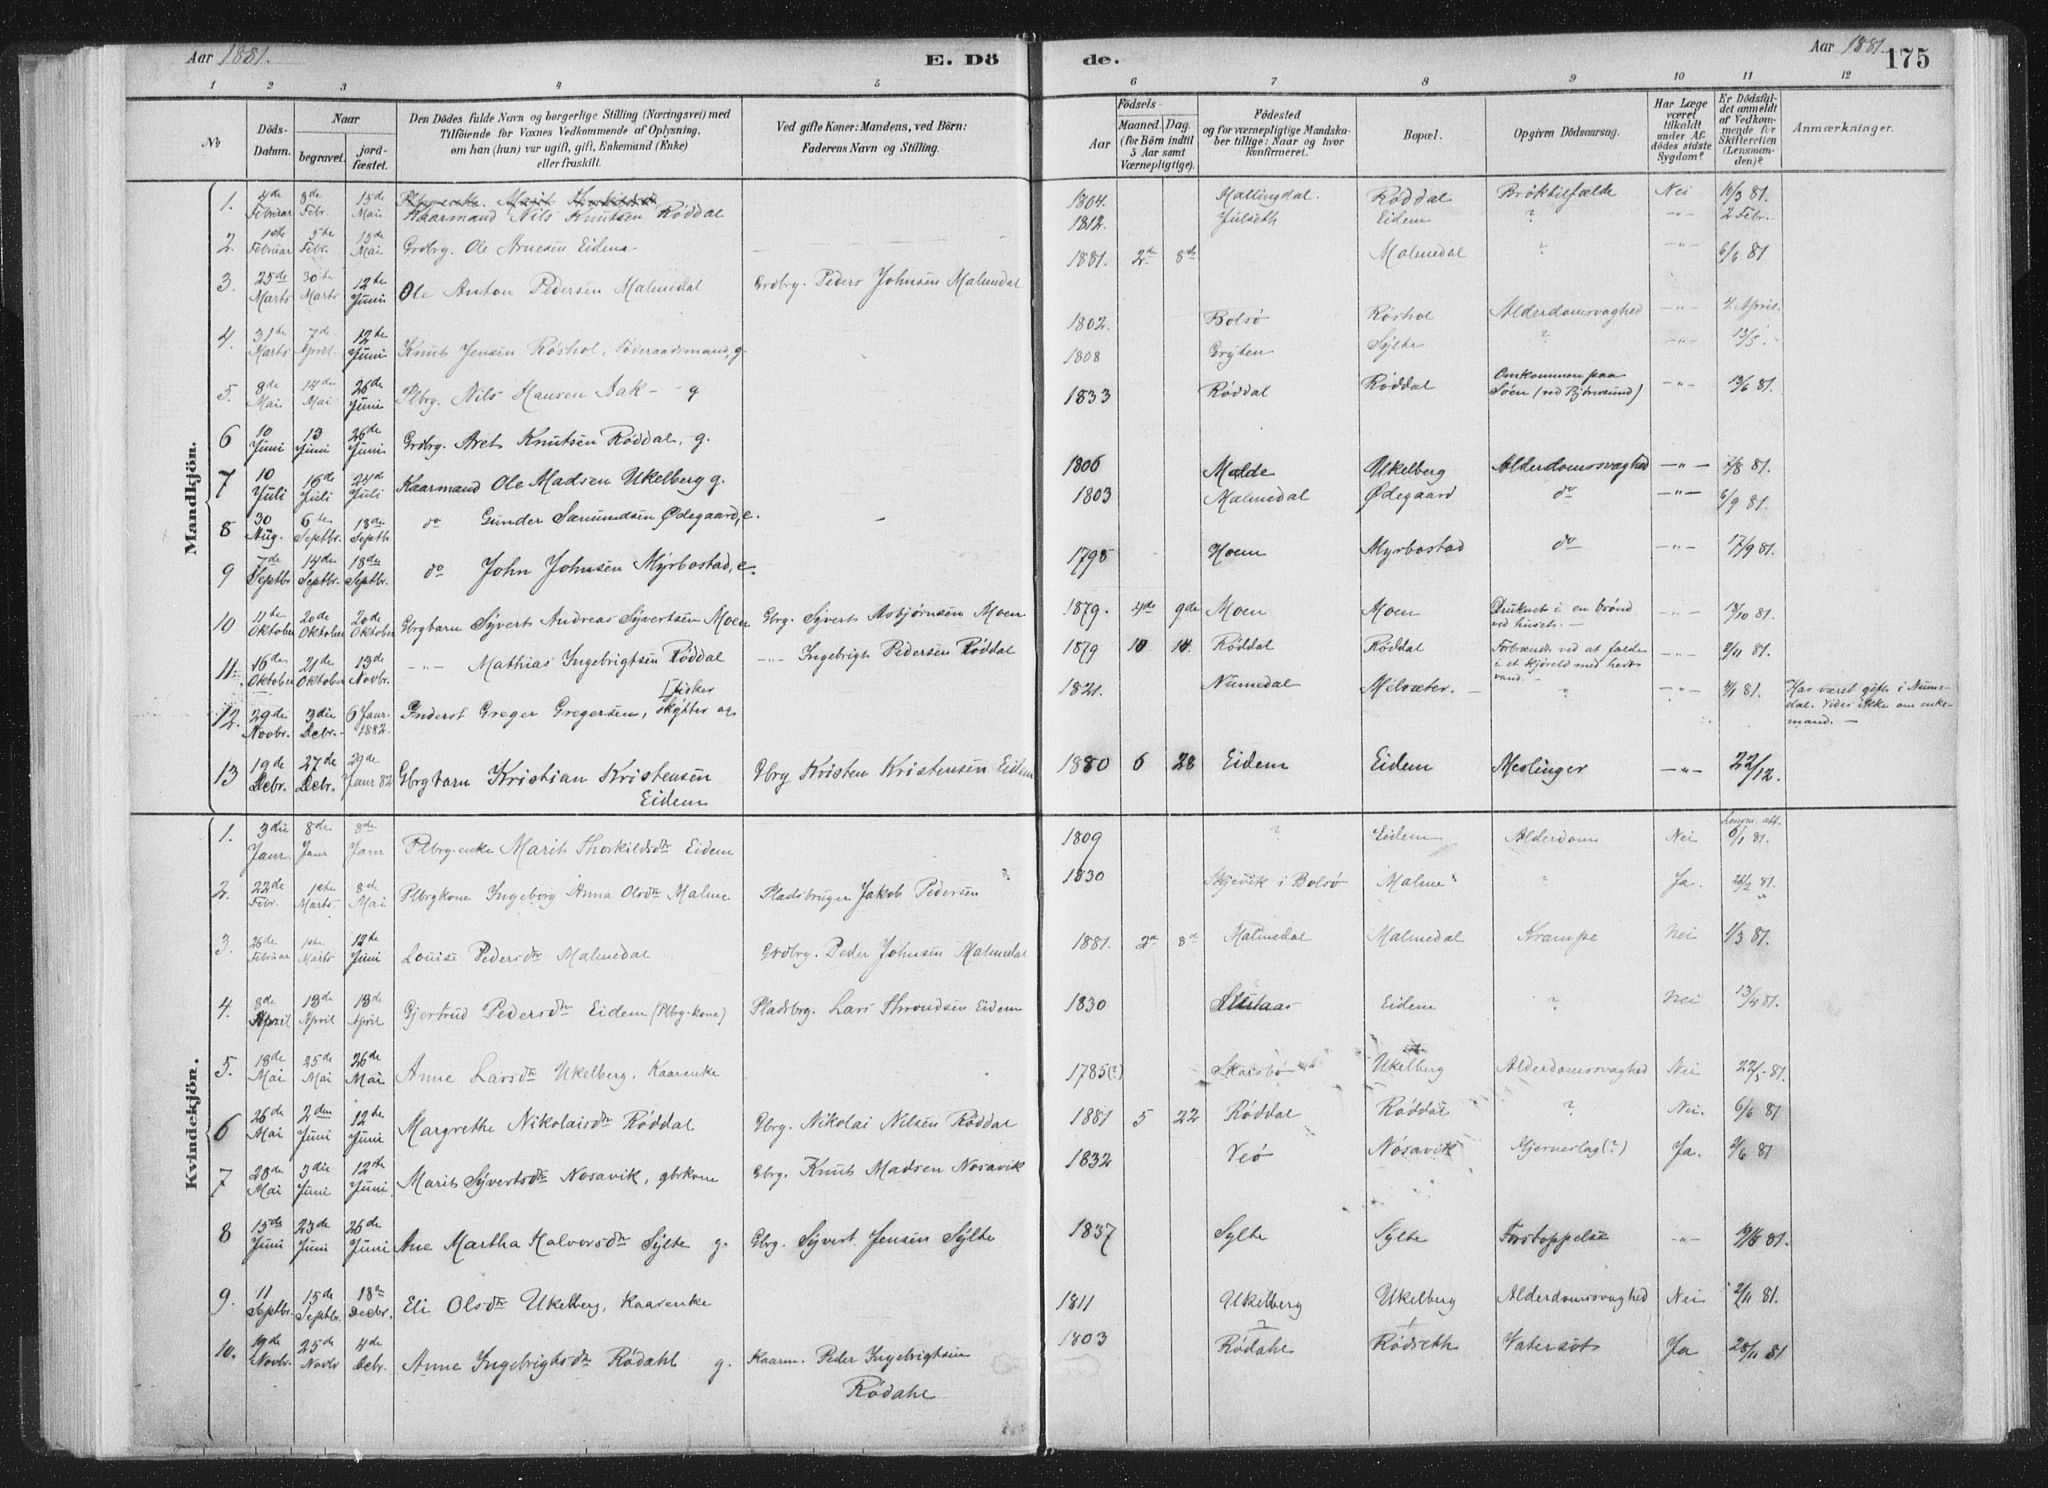 Aar 1881. E. Dö
de. Aar 1881. 175
1 2 3 4 5 6 7 8 9 10 11 12
No Döds-Datum. Naar begravet. jord-fæstet. Den Dödes fulde Navn og borgerlige Stilling (Næringsvei) med Tilföiende for Voxnes Vedkommende af Oplysning, om han (hun) var ugift, gift, Enkemand (Enke) eller fraskilt. Ved gifte Koner: Mandens, ved Börn: Faderens Navn og Stilling. Födsels- Aar Maaned. Dag. (for Börn indtil 5 Aar samt Værnepligtige). Födested og for værnepligtige Mandskaber tillige: Naar og hvor konfirmeret. Bopæl. Opgiven Dödsaarsag. Har Læge været tilkaldt under Afdödes sidste Sygdom? Er Dödsfaldet anmeldt af Vedkommende for Skifteretten (Lensmanden)? Anmærkninger.
Mandkjön.
1. 4de Februar 8de Febr. 15de Mai Plbrgenke. Marit Thorkildsd Kaarmand Nils Knutsen Røddal 1804. Hallingdal. Røddal Broktilfælde Nei 10/3 81.
2. 1ste Februar 5te Febr. 15de Mai Grdbrg. Ole Arnesen Eidem 1812. Julseth Eidem ? -"- 2 Febr.
3. 25de Marts 30te Marts 12te Juni Ole Anton Pedersen Malmedal Grdbrg. Peder Johnsen Malmedal 1881. 2de 8de Malmedal ? -"- 6/6 81
4. 31te Marts 7de April 12te Juni Knut Jensen Røshol, Føderaadsmand, g. 1802. Bolsø Røshol Alderdomsvaghed -"- 4 April.
5. 8de Mai 14de Mai 26de Juni Plbrg. Nils Hansen Aak - g 1808 Gryten Sylte ? -"- 13/5.
6 10 Juni 13 Juni 26de Juni Grdbrg. Aret Knutsen Røddal, g. 1833 Røddal Røddal Omkommen paa Søen (ved Bjørnsund) -"- 13/6 81.
7 10 Juli 16de Juli 24de Juli Kaarmand Ole Madsen Ukelberg g. 1806 Molde Ukelberg Alderdomssvaghed -"- 2/8 81.
8 30 Aug. 6te Septbr. 18de Septb. do Gunder Sæmundsen Ødegaard, e. 1803 Malmedal Ødegaard do -"- 6/9 81.
9 7de Septbr 14de Septbr. 18de Septbr. do John Johnsen Myrbostad, e. 1795 Hoem Myrbostad do -"- 17/9 81.
10 11te Oktober 20de Oktober 20de Oktober Gbrgbarn Syvert Andreas Syvertsen Moen Gbrg. Syvert Asbjørnsen Moen 1879. 4de 9de Moen Moen Druknet i en brønd ved huset. - -"- 18/10 81.
11. 16de Oktober 21de Oktober 13de Novbr. -"- Mathias Ingebrigtsen Røddal -"- Ingebrigt Pedersen Røddal 1879 10 14. Røddal Røddal Forbrændt ved at falde i et kjøreld med hedt vand. - -"- 2/11 81.
12. 29de Novbr. 3die Debr. 6 Janr. 1882. Inderst Greger Gregersen, Skytter og Fisker 1821. Numedal Melsæter. - " -"- 4/1 81. Har været gift i Numedal. Vides ikke om enkemand. -
13 19de Debr. 27de Debr. 29de Janr 82 Gbrgbarn Kristian Kristensen Eidem Gbrg Kristen Kristensen Eidem 1880 6 28 Eidem Eidem Meslinger -"- 22/12.
Kvindekjön.
1. 3die Janr. 8de Janr 8de Janr Plbrg-enke Marit Thorkildsdtr Eidem 1809 ? Eidem Alderdom Nei Lensm. att. 6/1 81.
2. 22de Febr. 1ste Marts 8de Mai Plbrgkone Ingeborg Anna Olsdtr Malme Pladsbruger Jakob Pedersen 1830 Skjevik i Bolsø Malme ? Ja. 28/2 81.
3. 26de Februar 1ste Marts 12te Juni Louise Pedersdtr Malmedal Grdbrg. Peder Johnsen Malmedal 1881. 2de 8de Malmedal Malmedal Krampe Nei 1/3 81.
4. 8de April 13de April 13de April Gjertrud Pedersdtr Eidem (Plbrg-kone) Pladsbrg. Lars Throndsen Eidem 1830 Eidem ? Nei 13/4 81.
5. 18de Mai 25de Mai 26de Mai Anne Larsdtr Ukelberg, Kaarenke 1785(?) Skarsbø Ukelberg Alderdomssvaghed Nei 22/5 81.
6 26de Mai 2den Juni 12te Juni Margrethe Nikolaisdtr Røddal Gbrg. Nikolai Nilsen Røddal 1881 5 22 Røddal Røddal ? Nei. 6/6 81
7 28de Mai 3die Juni 12te Juni. Marit Syvertsdtr Nosavik, gbrkone Gbrg. Knut Madsen Nosavik 1832 Veø Nosavik Hjerneslag (?) Ja. 2/6 81
8 15de Juni 23de Juni 26de Juni Ane Martha Halvorsdtr Sylte g. Gbrg. Syvert Jensen Sylte 1837 Sylte Sylte Forstoppelse -"- 19/8 81.
9. 11 Septbr. 15de Septbr. 18de Decbr. Eli Olsdtr Ukelberg, Kaarenke 1811 Ukelberg Ukelberg Alderdomssvaghed Nei 2/11 81.
10. 19de Novbr. 25de Novbr 4de Debr. Anne Ingebrigtsdtr Rødahl g. Kaarm. Peder Ingebrigtsen Rødahl 1803 ? Rødahl Rødseth Vatersot Ja 28/11 81